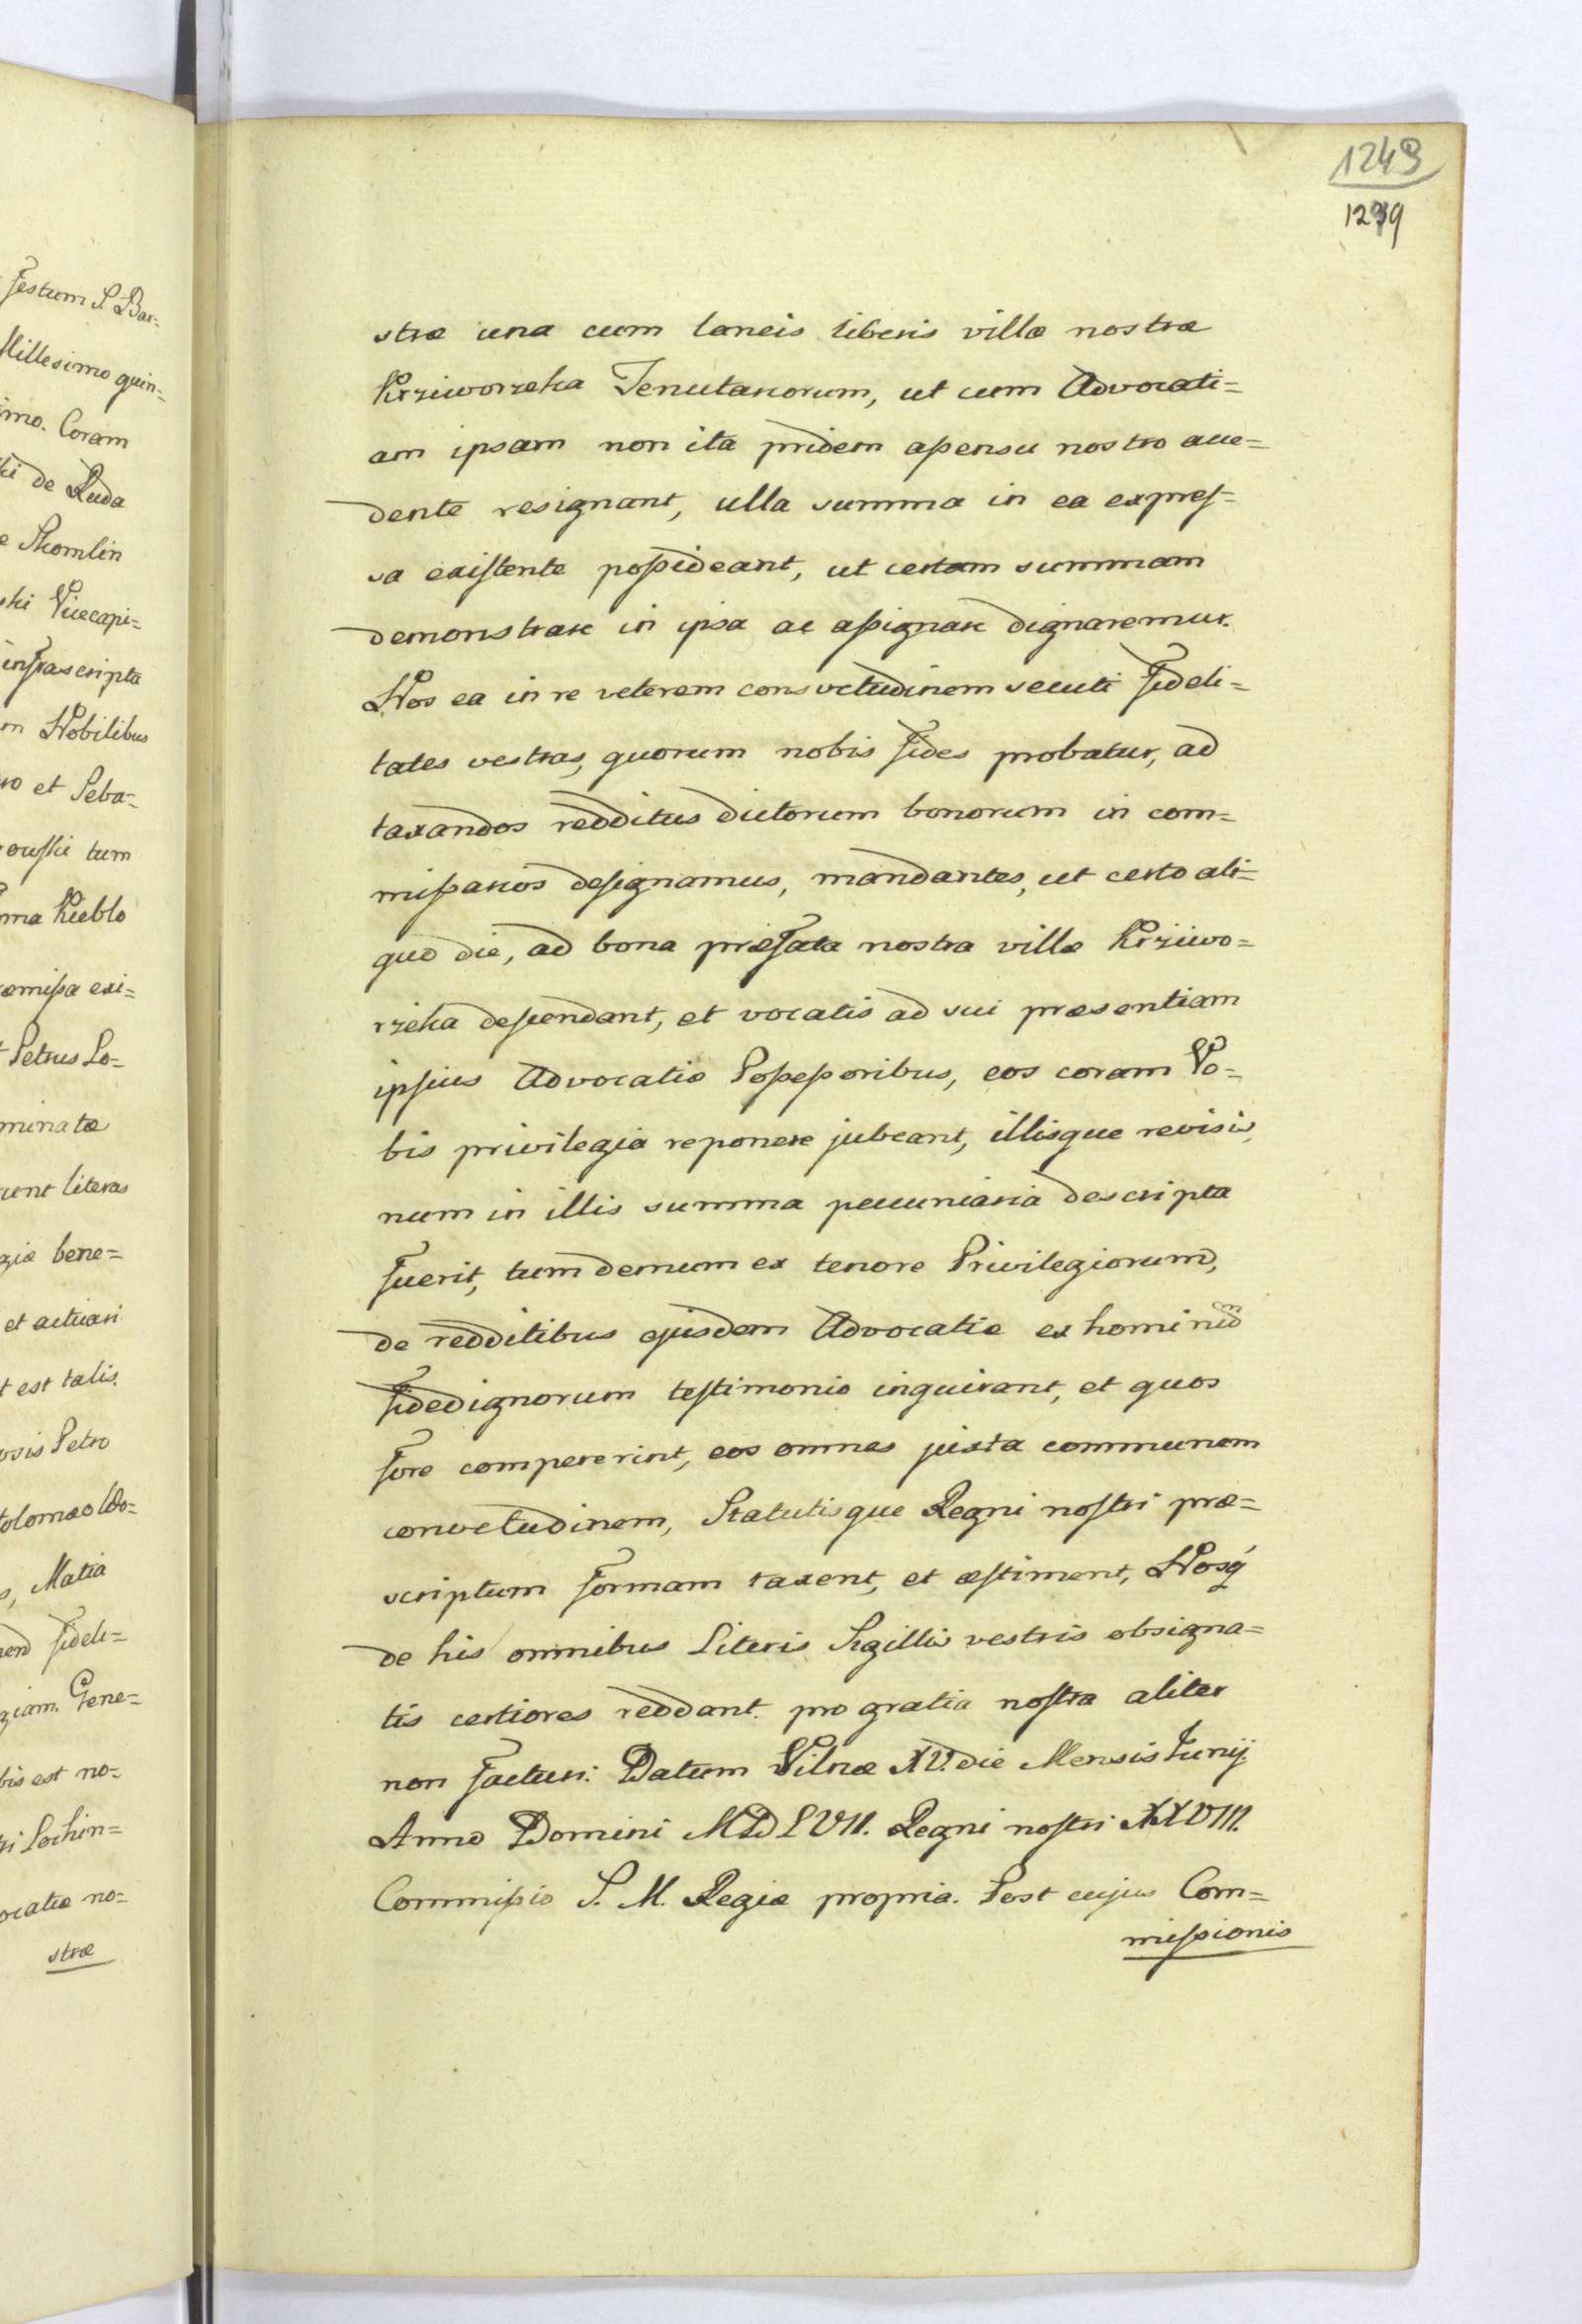 Festum S. Bar=
Millesimo quin=
imo. Coram
ki de Ruda
e Skomlin
ski Vicecapi=
infrascripta
m Nobilibus
no et Seba=
ouski tum
ma Kieblo
remissa exi=
t Petrus Lo=
minatæ
runt literas
giæ bene=
et actuari
t est talis.
osis Petro
tolomæo Wo=
s, Matia
end fideli=
giam. Gene=
bis est no=
ri Lochin=
ocatiæ no=
stræ
1243
1239
stræ una cum laneis liberis villæ nostræ
Krziworzeka Tenutariorum, ut cum Advocati=
am ipsam non ita pridem assensu nostro acce=
dente resignant, ulla summa in ea expres=
sa existente possideant, ut certam summam
demonstrare in ipsa ac assignare dignaremur.
Nos ea in re veterem consvetudinem secuti fideli=
tates vestras, quorum nobis fides probatur, ad
taxandos redditus dictorum bonorum in com=
missarios designamus, mandantes, ut certo ali=
quo die, ad bona præfata nostra villæ Krziwo=
rzeka descendant, et vocatis ad sui præsentiam
ipsius Advocatiæ Possessoribus, eos coram Vo=
bis privilegia reponere jubeant, illisque revisis,
num in illis summa pecuniaria descripta
fuerit, tum demum ex tenore Privilegiorum,
de redditibus ejusdem Advocatiæ ex hominum
fidedignorum testimonio inquirant, et quos
fore compererint, eos omnes juxta communem
convetudinem, Statutisque Regni nostri præ=
scriptum formam taxent, et æstiment, Nosq́
de his omnibus Literis Sigillis vestris obsigna=
tis certiores reddant. pro gratia nostra aliter
non facturi. Datum Vilnæ XV. die Mensis Junij.
Anno Domini MDLVII. Regni nostri XXVIII.
Commissio S. M. Regiæ propria. Post cujus Com=
missionis